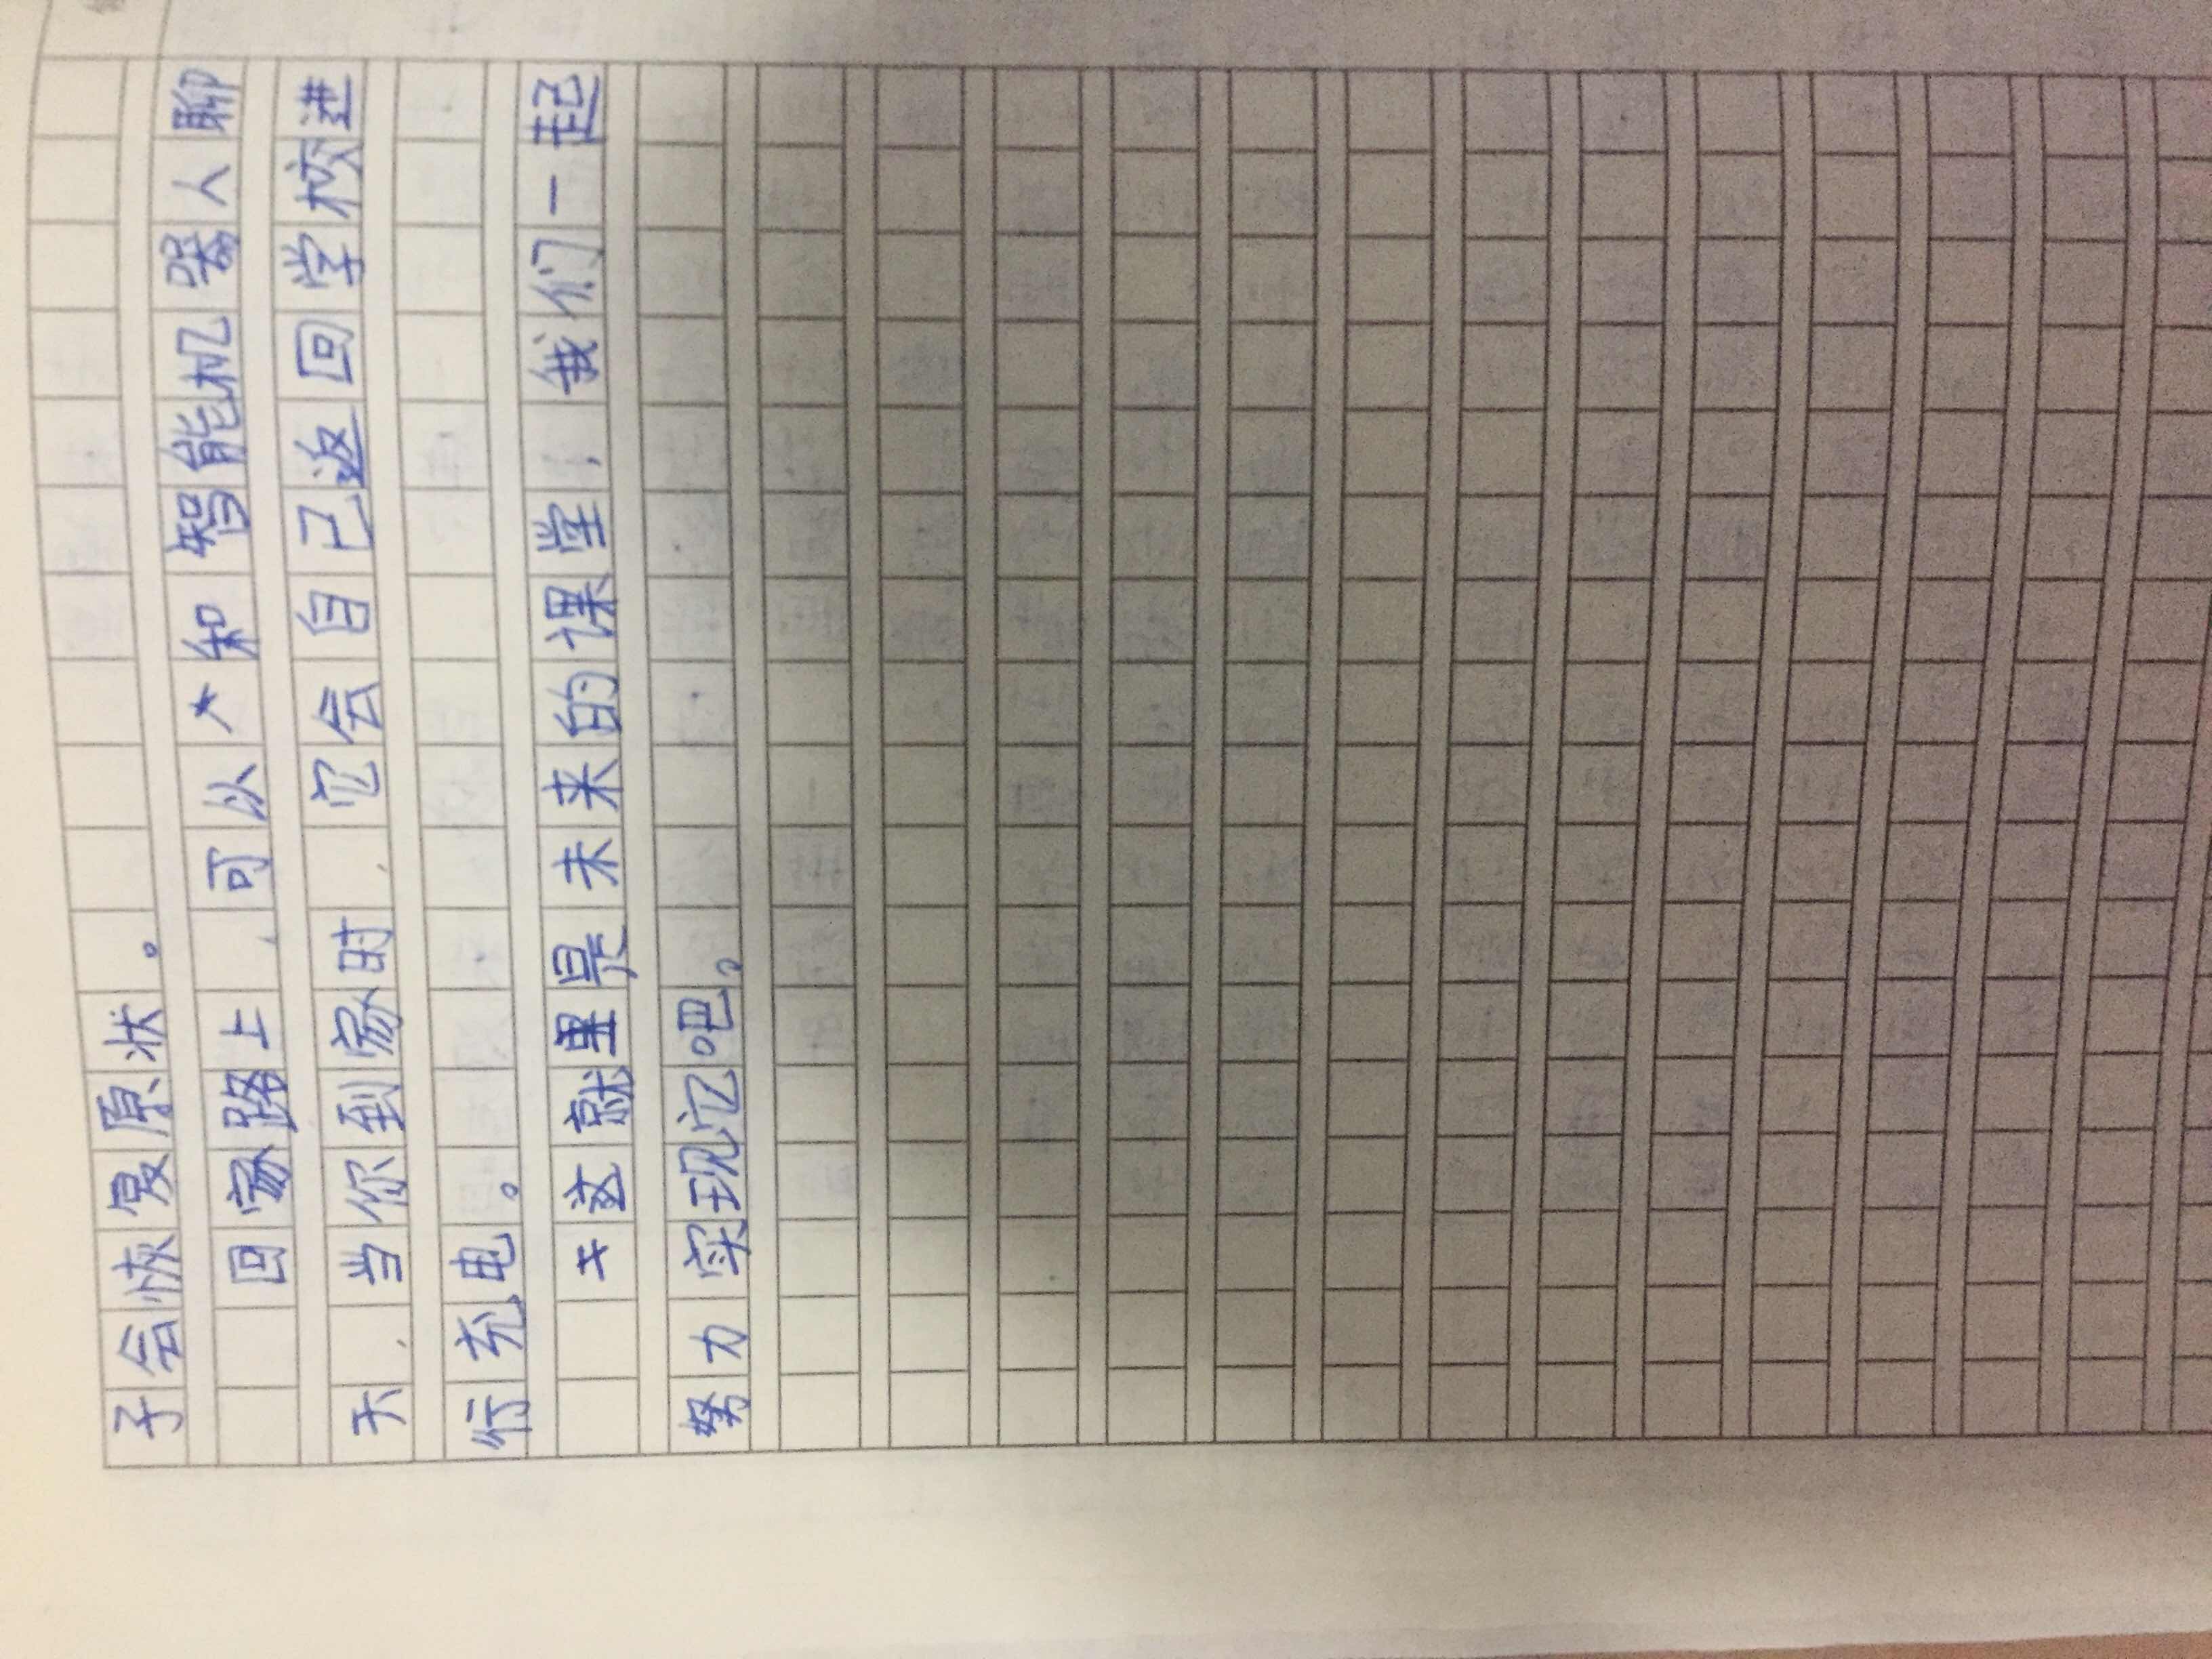 子会恢复原状。
回家路上,可以和智能机器人聊
天,当你到家时,它会自己返回学校进
行充电。
这就里是未来的课堂,我们一起
努力实现它吧。